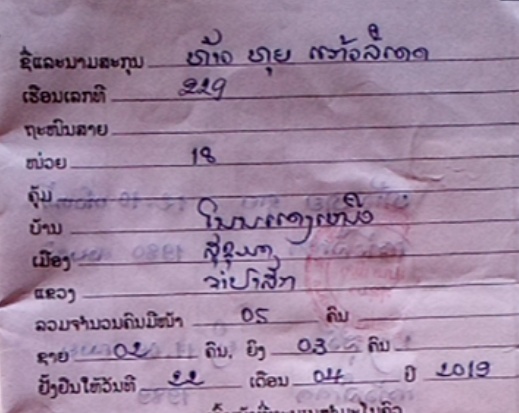 ຊື່ແລະນາມສະກຸນ ທ້າວ ຫຸຍ
ເຮືອນເລກທີ 229
ຖະໜົນສາຍ
ໜ່ວຍ 18
ຄຸ້ມ
ບ້ານ
ເມືອງ ສຸຂຸມາ
ແຂວງ ຈຳປາສັກ
ລວມຈຳນວນຄົນມີໜ້າ 05 ຄົນ
ຊາຍ 02 ຄົນ, ຍິງ 03 ຄົນ
ຢັ້ງຢືນໃຫ້ວັນທີ 22 ເດືອນ 04 ປີ 2019